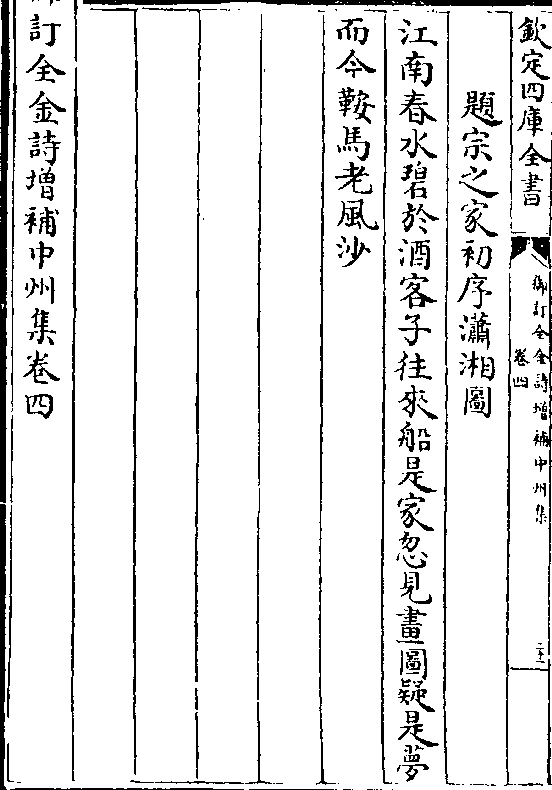 欽定四庫全書
御訂全金詩增補中州集
卷四
題宗之家初序瀟湘圖
江南春水碧於酒客子往來船是家忽見畫圖疑是夢
而今鞍馬老風沙
御訂全金詩增補中州集卷四